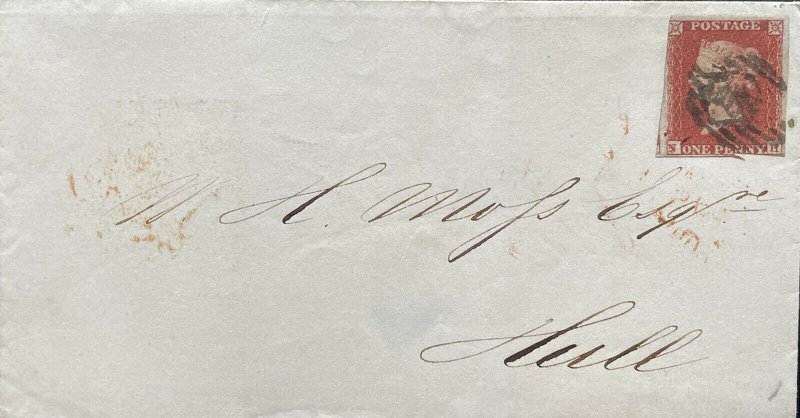 POSTAGE
ONE PENNY
W. H. Moſs Esqre
Hull